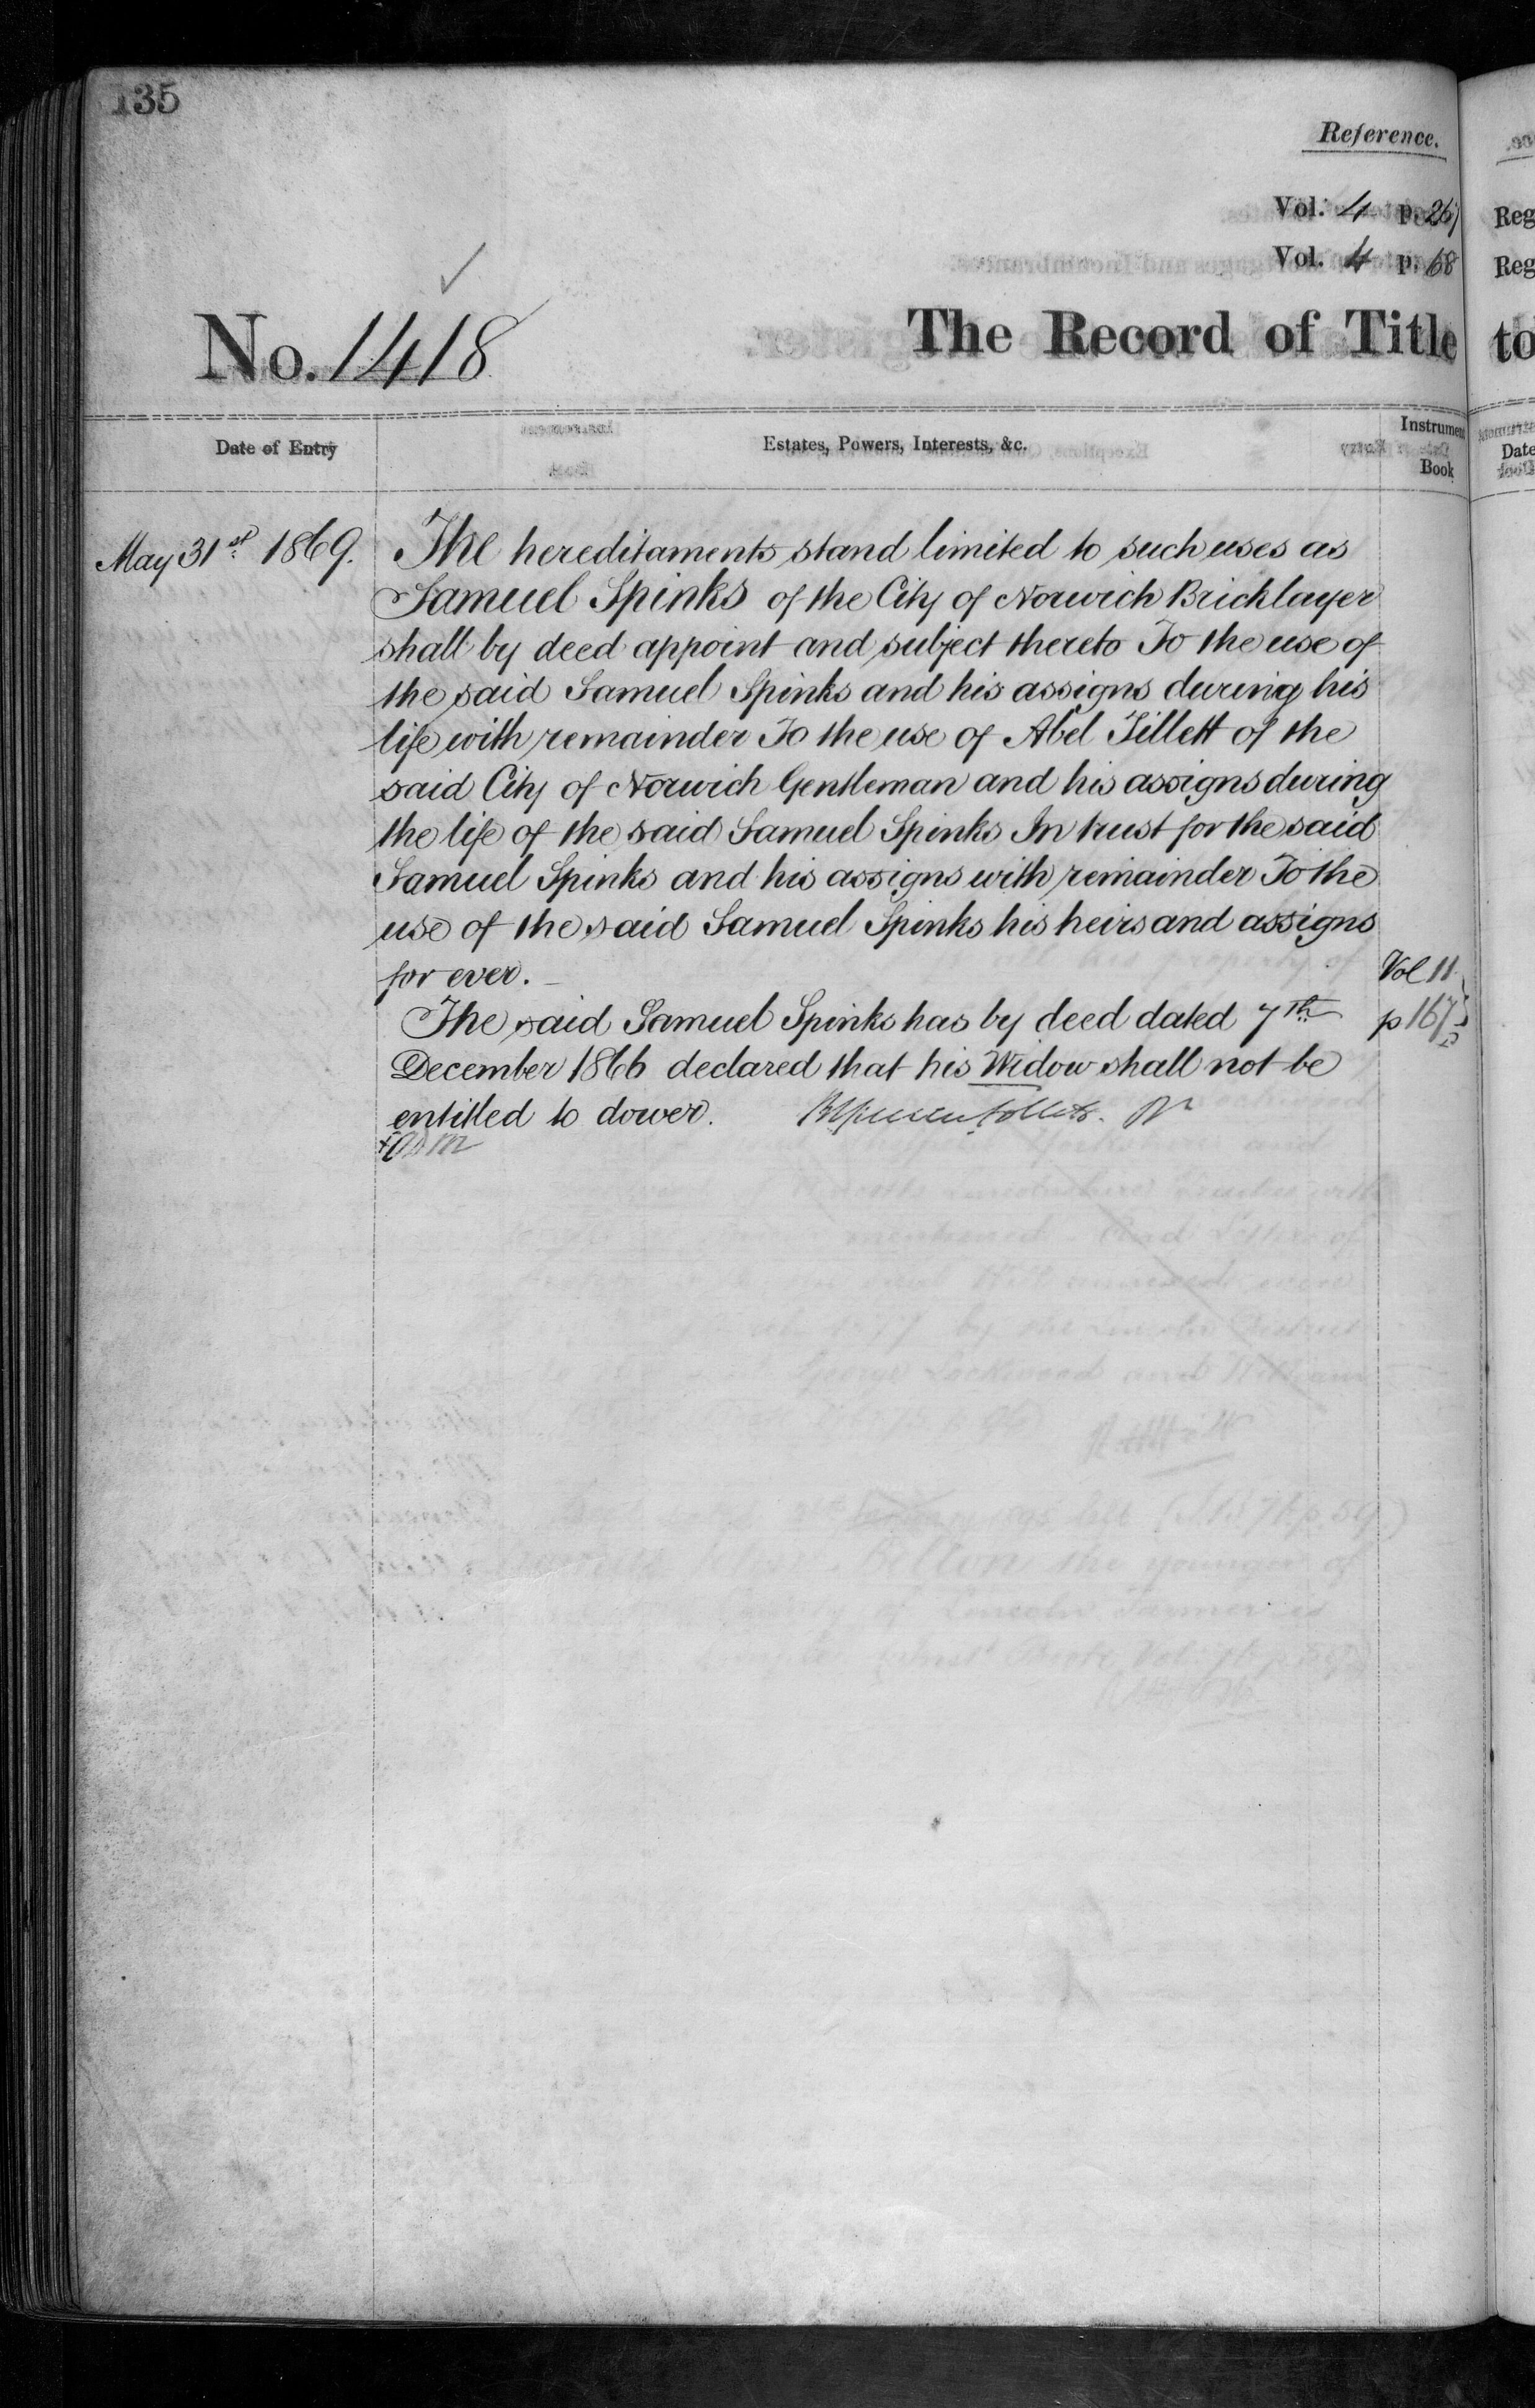 135
Reference.
Vol. 4 p. 267
Vol. 4 p. 68
No. 1418
The Record of Title
Date of Entry
Estates, Powers, Interests, &c.
Instrument
Book
May 31st 1869.
The hereditaments stand limited to such uses as
Samuel Spinks of the City of Norwich Bricklayer
shall by deed appoint and subject thereto To the use of
the said Samuel Spinks and his assigns during his
life with remainder To the use of Abel Tillett of the
said City of Norwich Gentleman and his assigns during
the life of the said Samuel Spinks In trust for the said
Samuel Spinks and his assigns with remainder To the
use of the said Samuel Spinks his heirs and assigns
for ever.
Vol 11
The said Samuel Spinks has by deed dated 7th
p 167
December 1866 declared that his Widow shall not be
entitled to dower.
Reg
Reg
to
Date